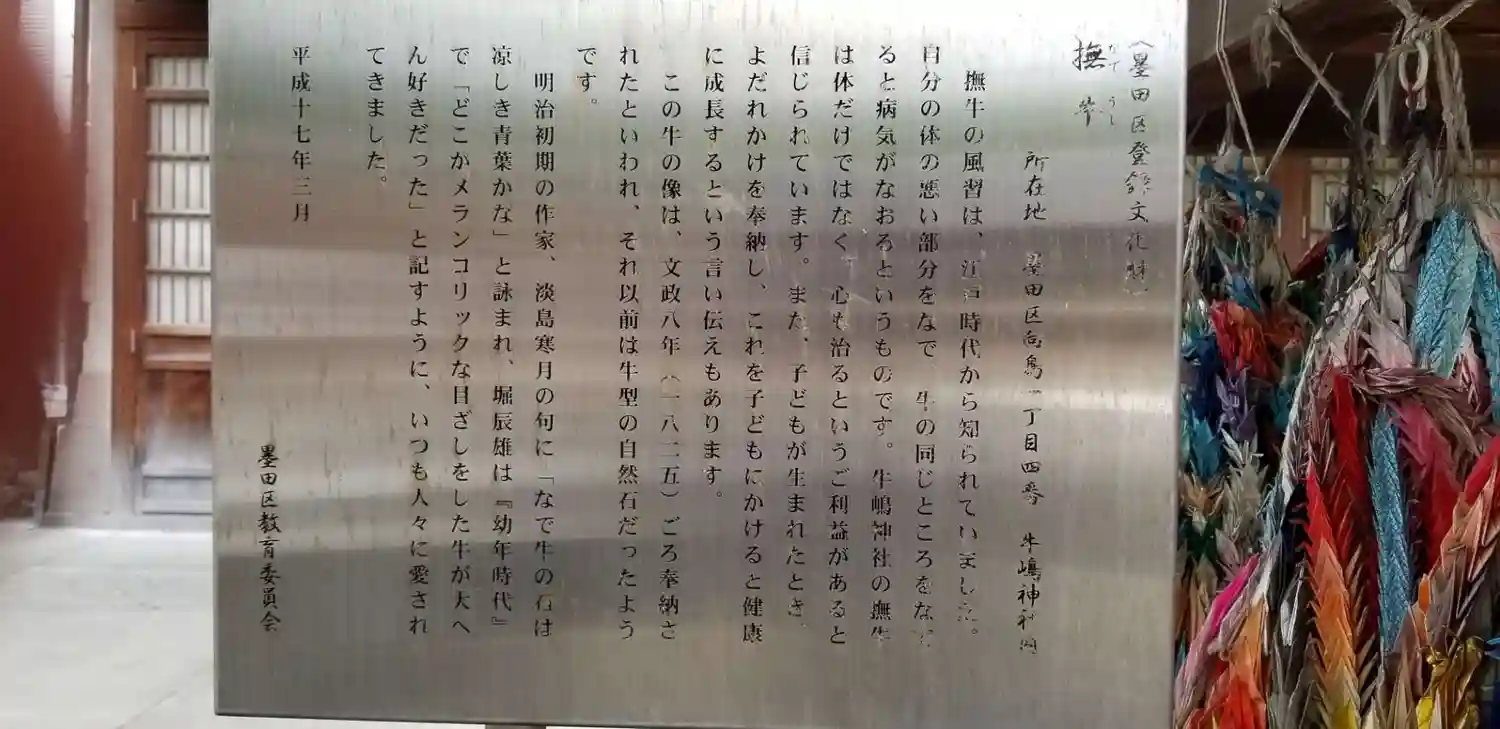 〈墨田区登録文化財〉
撫牛
なで うし
所在地 墨田区向島一丁目四番 牛嶋神社内
撫牛の風習は、江戸時代から知られていました。
自分の体の悪い部分をなで、牛の同じところをなで
ると病気がなおるというものです。牛嶋神社の撫牛
は体だけではなく、心も治るというご利益があると
信じられています。また、子どもが生まれたとき、
よだれかけを奉納し、これを子どもにかけると健康
に成長するという言い伝えもあります。
この牛の像は、文政八年（一八二五）ごろ奉納さ
れたといわれ、それ以前は牛型の自然石だったよう
です。
明治初期の作家、淡島寒月の句に「なで牛の石は
凉しき青葉かな」と詠まれ、堀辰雄は『幼年時代』
で「どこかメランコリックな目ざしをした牛が大へ
ん好きだった」と記すように、いつも人々に愛され
てきました。
平成十七年三月
墨田区教育委員会